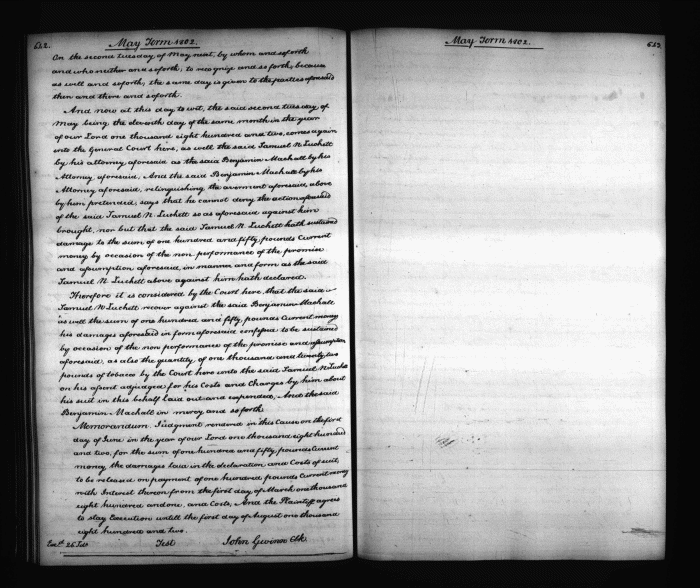 652.
May Term 1802.
On the second tuesday of May next, by whom and soforth
and who neither and soforth, to recognize and so forth, because
as well and soforth, the same day is given to the parties aforesaid
then and there and soforth.
And now at this day to wit, the said second tuesday of
May being the eleventh day of the same month in the year
of our Lord one thousand eight hundred and two, comes again
into the General Court here, as well the said Samuel N Luckett
by his attorney aforesaid as the said Benjamin Mackall by his
Attorney aforesaid, And the said Benjamin Mackall by his
Attorney aforesaid, relinquishing the averment aforesaid, above
by him pretended, says that he cannot deny the action aforesaid
of the said Samuel N. Luckett so as aforesaid against him
brought, nor but that the said Samuel N. Luckett hath sustained
damage to the sum of one hundred and fifty pounds Current
money by occasion of the non performance of the promise
and assumption aforesaid, in manner and form as the said
Samuel N Luckett above against him hath declared.
Therefore it is considered by the Court here, that the said
Samuel N Luckett recover against the said Benjamin Mackall
as well the sum of one hundred and fifty pounds Current money
his damages aforesaid in form aforesaid confessed to be sustained
by occasion of the non performance of the promise and assumption
aforesaid, as also the quantity of one thousand and twenty two
pounds of tobacco by the Court here unto the said Samuel N Luckett
on his assent adjudged for his Costs and Charges by him about
his suit in this behalf laid out and expended, And the said
Benjamin Mackall in mercy and so forth
Memorandum. Judgment rendered in this Cause on the first
day of June in the year of our Lord one thousand eight hundred
and two, for the sum of one hundred and fifty pounds Current
money, the damages laid in the declaration, and Costs of suit,
to be released on payment of one hundred pounds Current money
with Interest thereon from the first day of March one thousand
eight hundred and one, and Costs, And the Plaintiff agrees
to stay Execution untill the first day of August one thousand
eight hundred and two.
Test John Gwinn Clk
May Term 1802.
653